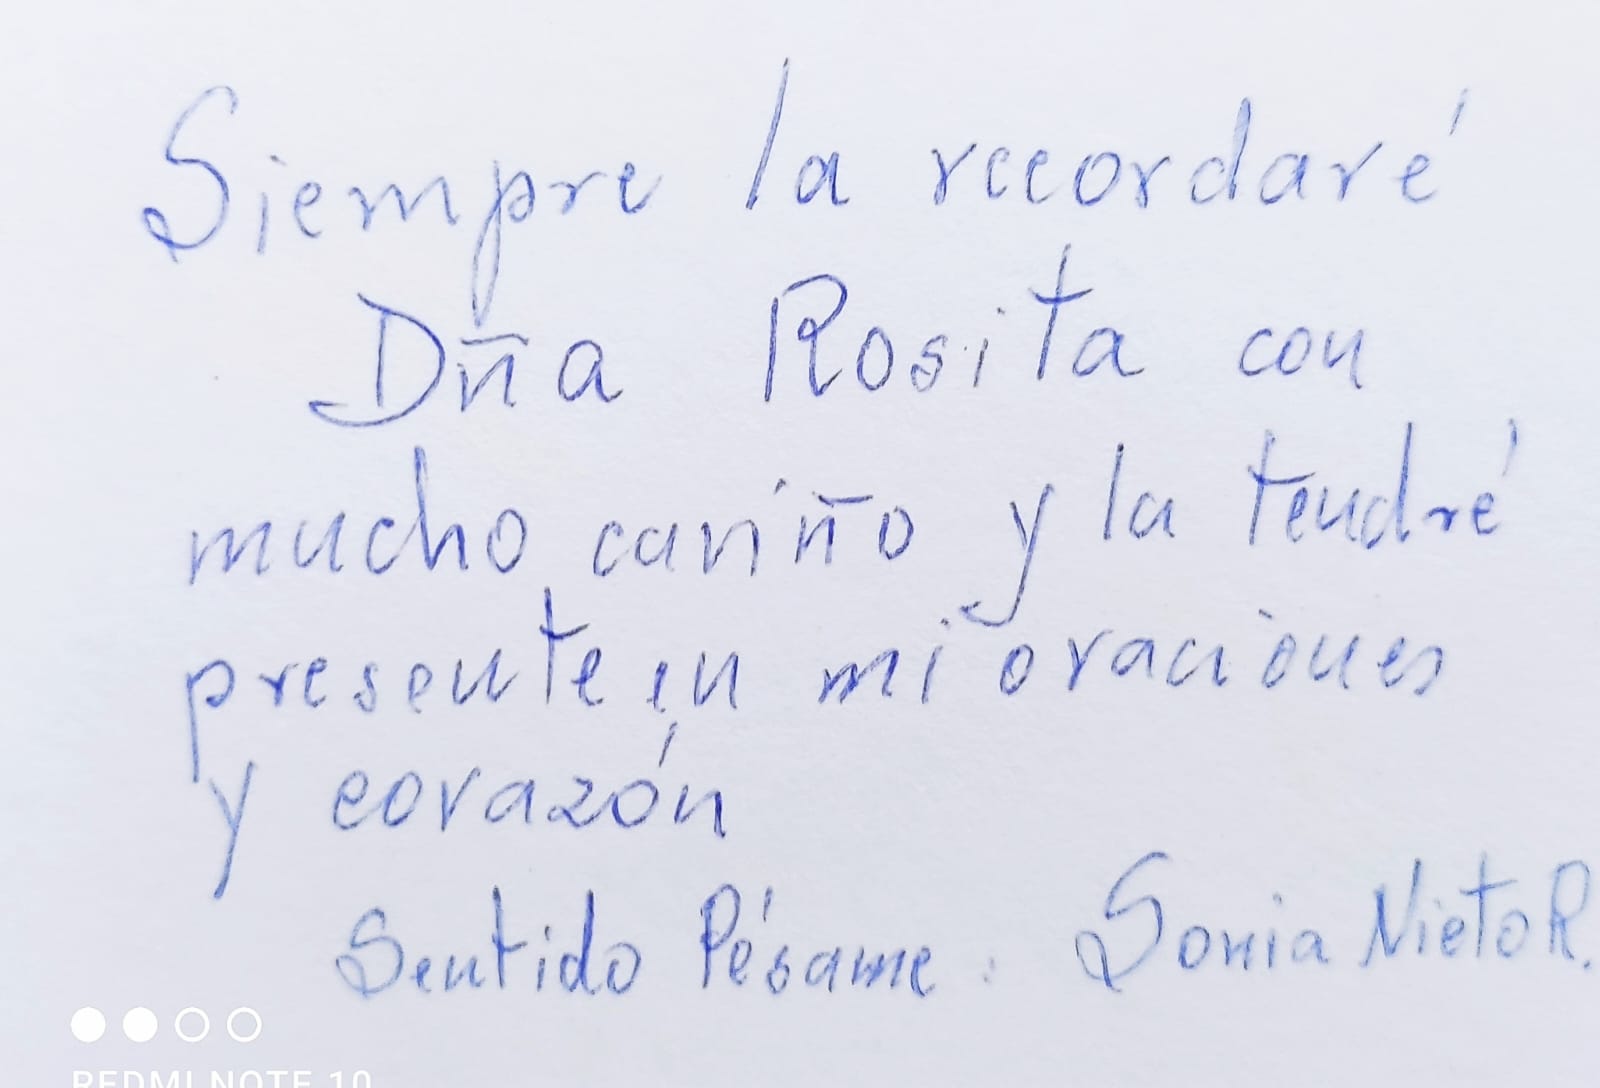 Siempre la recordaré
Dña Rosita con
mucho cariño y la tendré
presente en mi oraciones
y corazón
Sentido Pésame. Sonia Nieto R.
REDMI NOTE 10